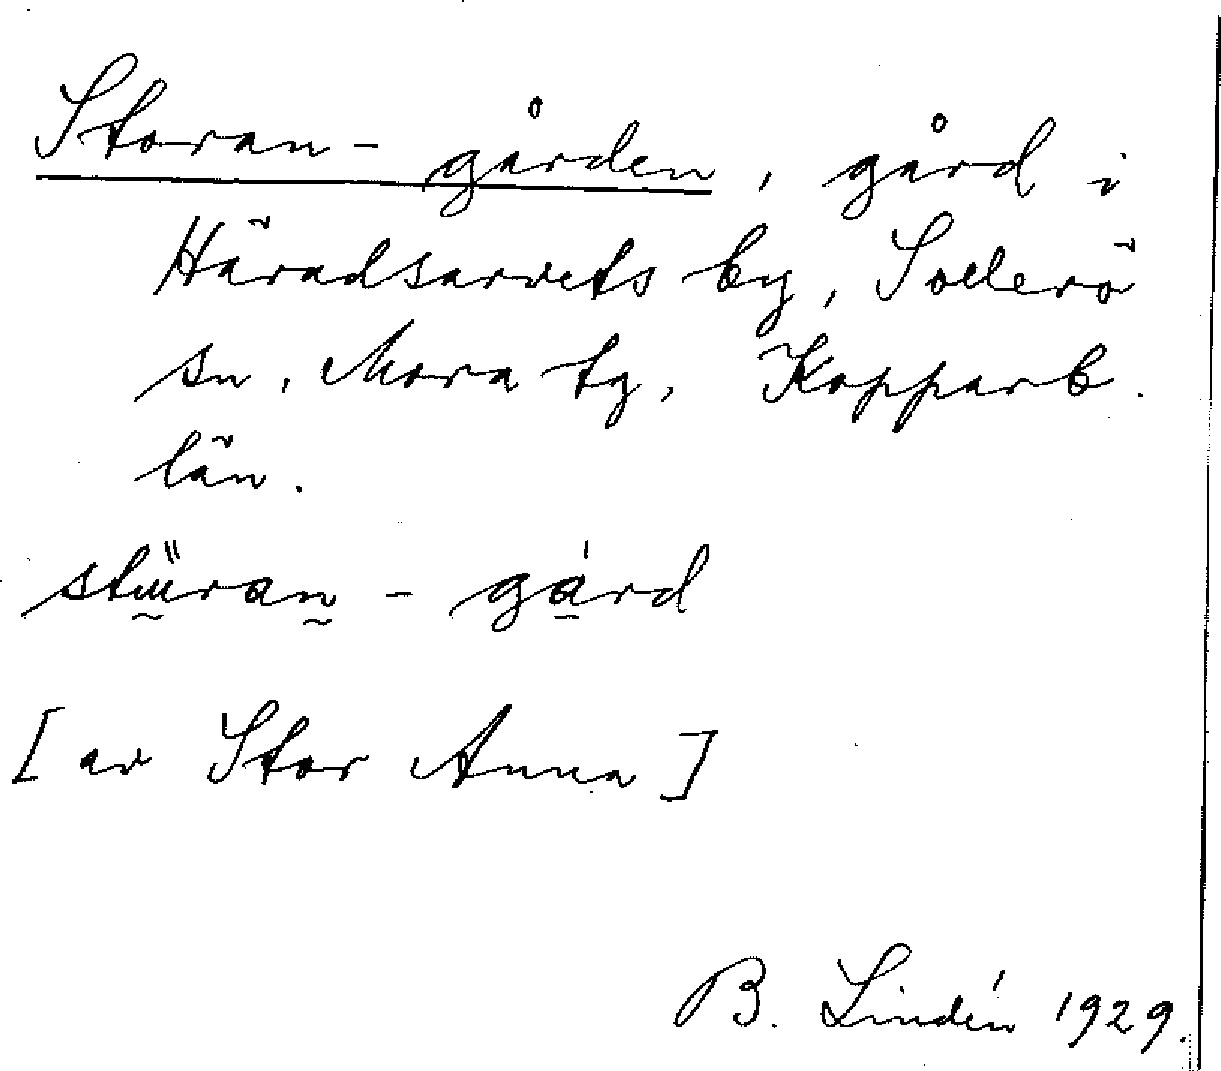 Storan-gården, gård i
Häradsarvets by, Sollerö
sn, Mora tg, Kopparb.
län.
stüran - gård
[av Stor Anna]
B. Lindén 1929.